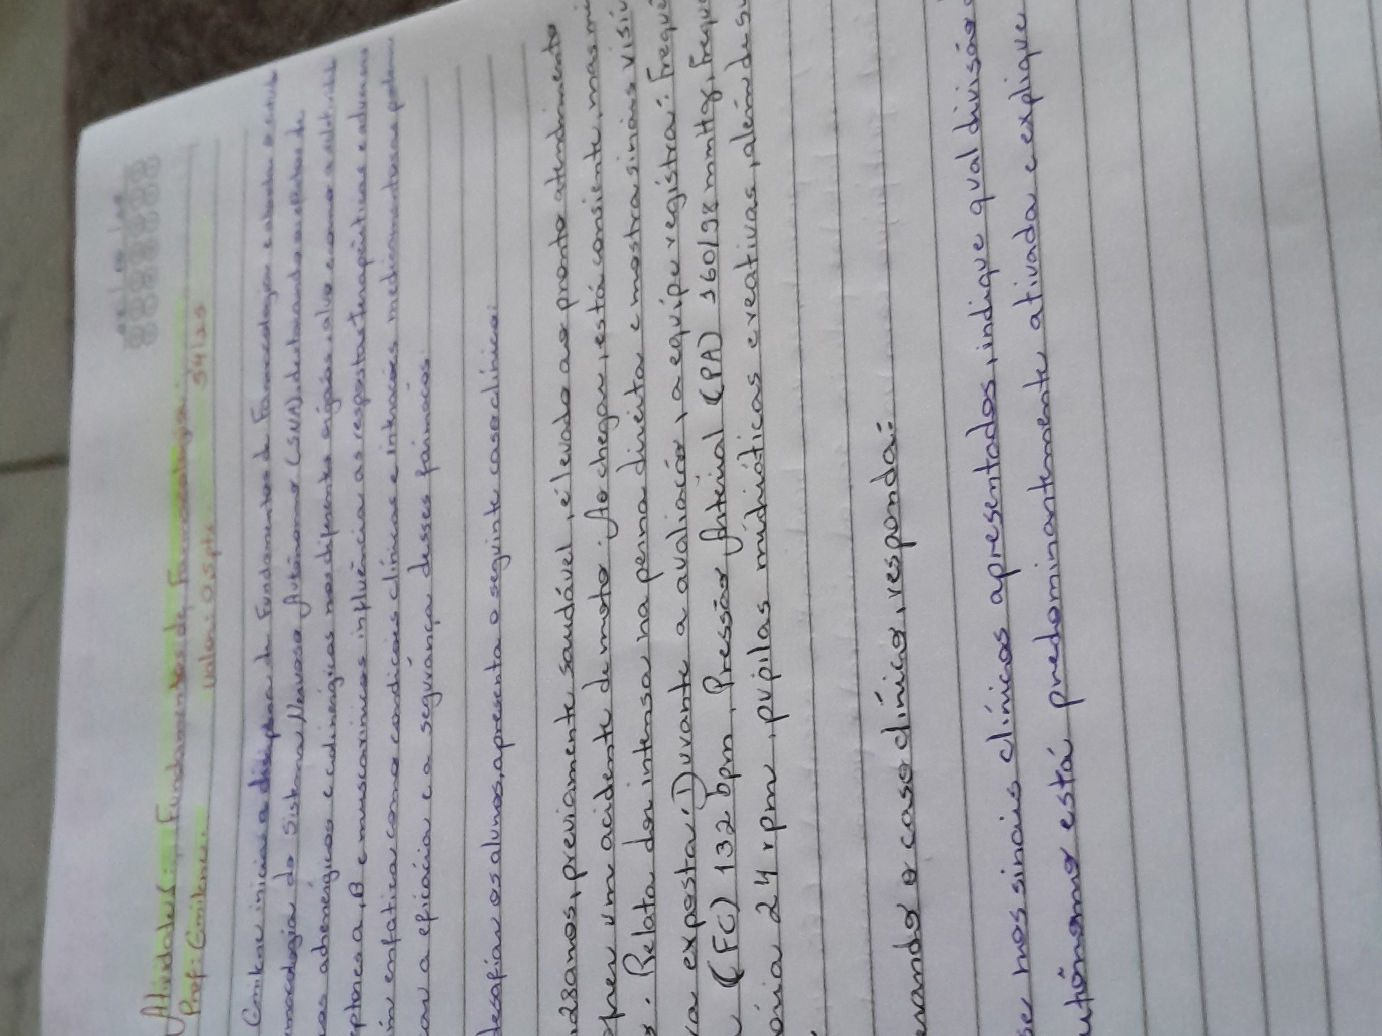 Atividades: Fundamentos da Farmacologia
Prof: Emilene. Valor: 0,5 pts
Emilene inicia a disciplina de Fundamentos da Farmacologia e aborda a
macologia do Sistema Nervoso Autônomo (SNA), destacando os efeitos de
cas adrenérgicos e colinérgicos nos diferentes órgãos-alvo e como a
eptores a, B e muscarínicos influência as respostas terapêuticas e adversas
ém enfatiza como condições clínicas e interações medicamentosas podem
car a eficácia e a segurança desses fármacos.
desafiar os alunos, apresenta o seguinte caso clínico:
28 anos, previamente saudável, é levado ao pronto atendimento
ofrer um acidente de moto. Ao chegar, está consiente, mas mu
. Relata dor intensa na perna direita e mostra sinais visív
ra exposta. Durante a avaliação, a equipe registra: Frequê
(FC) 132 bpm, Pressão Arterial (PA) 160/98 mmHg, Freque
ória 24 rpm, pupilas midriáticas e reativas, além de su
erando o caso clínico, responda:
se nos sinais clínicos apresentados, indique qual divisão
utônomo está predominantemente ativada e explique